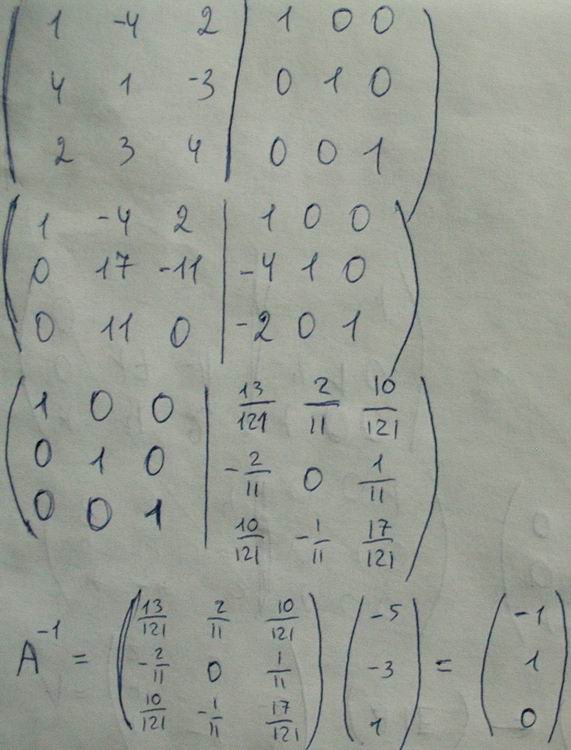 1 -4 2 | 1 0 0
4 1 -3 | 0 1 0
2 3 4 | 0 0 1
1 -4 2 | 1 0 0
0 17 -11 | -4 1 0
0 11 0 | -2 0 1
1 0 0 | 13/121 2/11 10/121
0 1 0 | -2/11 0 1/11
0 0 1 | 10/121 -1/11 17/121
A^-1 = ( 13/121 2/11 10/121 ; -2/11 0 1/11 ; 10/121 -1/11 17/121 ) ( -5 ; -3 ; 1 ) = ( -1 ; 1 ; 0 )